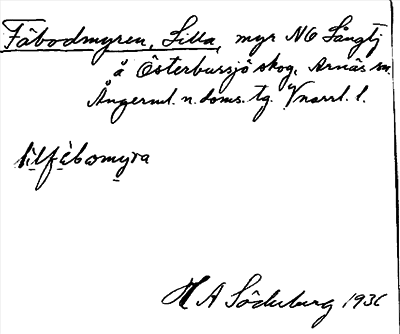 Fäbodmyren, Lilla, myr NO Långtj
å Österbursjö skog, Arnäs sn.
Ångerml. n. doms. tg. Ynorrl. l.
lìlfä̀bomyra
H A Söderberg 1936